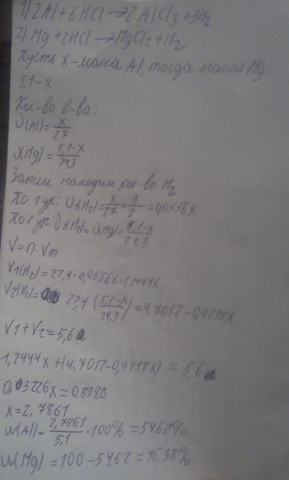 1) 2Al + 6HCl → 2AlCl3 + 3H2
2) Mg + 2HCl → MgCl2 + H2
Пусть X-масса Al, тогда масса Mg
5,1-x
Кол-во в-ва:
υ(Al) = x/27
υ(Mg) = 5,1-x/24,3
Затем находим кол-во H2
По 1 ур: υ1(H2) = x/27 · 3/2 = 0,0556x
По 2 ур: υ2(H2) = υ(Mg) = 5,1-x/24,3
V = n · Vm
V1(H2) = 22,4 · 0,0556x = 1,2444x
22,4 (5,1-x/24,3) = 4,7012 - 0,9218x
V1 + V2 = 5,6
1,2444x + (4,7012 - 0,9218x) = 5,6
x = 2,7861
ω(Al) = 2,7861/5,1 · 100% = 54,62%
ω(Mg) = 100 - 54,62 = 45,38%